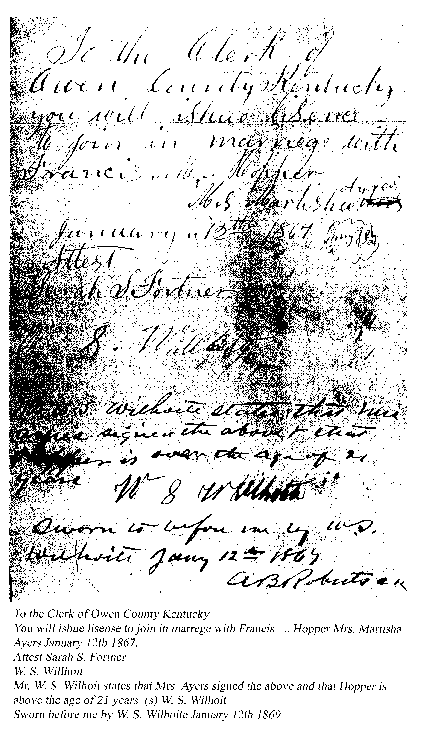 To the Clerk of
Owen County Kentucky
you will ishue lisense
to join in marrege with
Francis Hopper
Mrs Martisha Ayers
January 12th 1867
Attest
Sarah S Fortner
W. S. Willhoit
W S Wilhoite states that Mrs
Ayres signed the above & that
Hopper is over the age of 21
years
W S Wilhoite
Sworn to before me by W.S.
Wilhoite Jany 12th 1867
A B Robertson
To the Clerk of Owen County Kentucky
You will ishue lisense to join in marrege with Francis ... Hopper Mrs. Martisha
Ayers January 12th 1867.
Attest Sarah S. Fortner
W. S. Willhoit
Mr. W. S. Wilhoit states that Mrs. Ayers signed the above and that Hopper is
above the age of 21 years (s) W. S. Wilhoit
Sworn before me by W. S. Wilhoite January 12th 1869